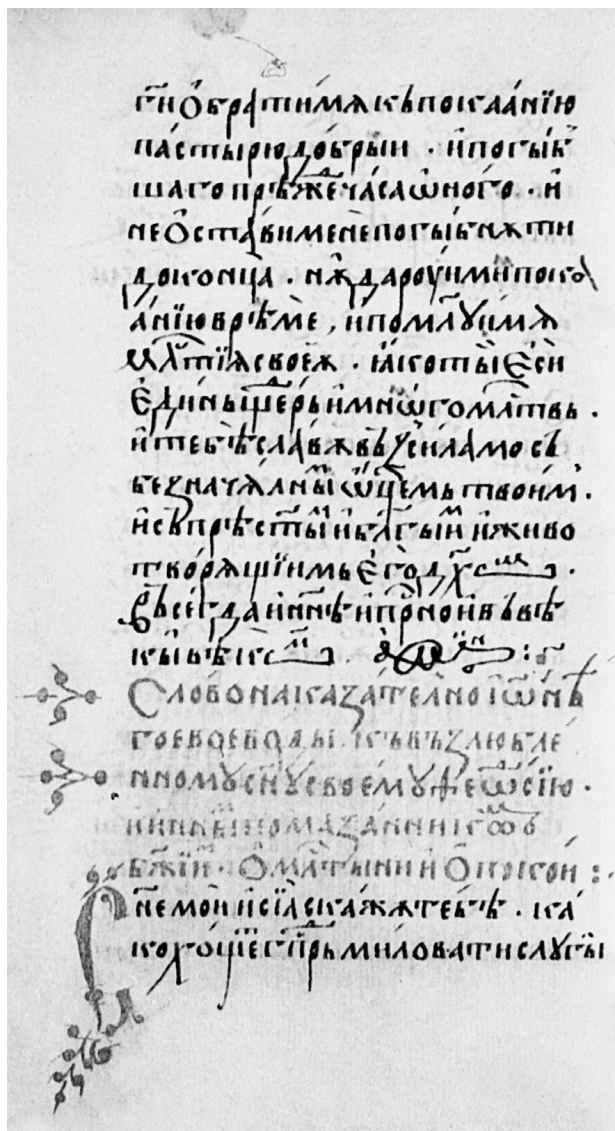 гн҃ Обратимѧ къ покаа́нїю
па́стырю до́брыи · и҆ погы́б
шаго прѣ́жⷣе ча́са ѡ҆ного · и҆
не О҆ста́ви мене погыбнѫти
до конца̀ · нѫ даро́уи ми пока
а́нїю врѣ́мѧ, и҆ помл҃ꙋи мѧ
мл҃тїѧ своеѫ · ꙗ҆ко ты̀ Є҆си
Є҆ди́нь щедрь и҆ мнѡ́гомлⷭ҇твь ·
и҆ тебѣ сла́вѫ въꙁсилаѧмо съ
беꙁнача́лныⷨ ѿц҃емь твоимⷨ ·
и҆ съ прѣст҃ыⷨ и҆ бл҃гы́иⷨ и҆ живо
творѧщїимь Є҆го дх҃омь ·
Въсегда и҆ нн҃ѣ и҆ прⷭ҇но и҆ въ вѣ
кы̀ вѣ́кѡⷨ а҆ми́нь :
Слово наказа́телно Іѡ҆а҃нѣ
гое воево́ды · къ въꙁлюбле́
нномꙋ сн҃ꙋ своемꙋ ѳеѡⷣсїю ·
О҆ млⷭ҇тыни и҆ О҆ покои :
Сн҃е мои и҆ сїа́ скажѫ тебѣ · ка́
ко хо́щет црь҃ миловати слꙋгы